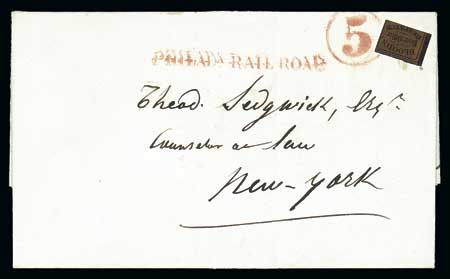 5
PHILADA RAIL ROAD
Theod. Sedgwick, Esqr.
Counselor at Law
New-York